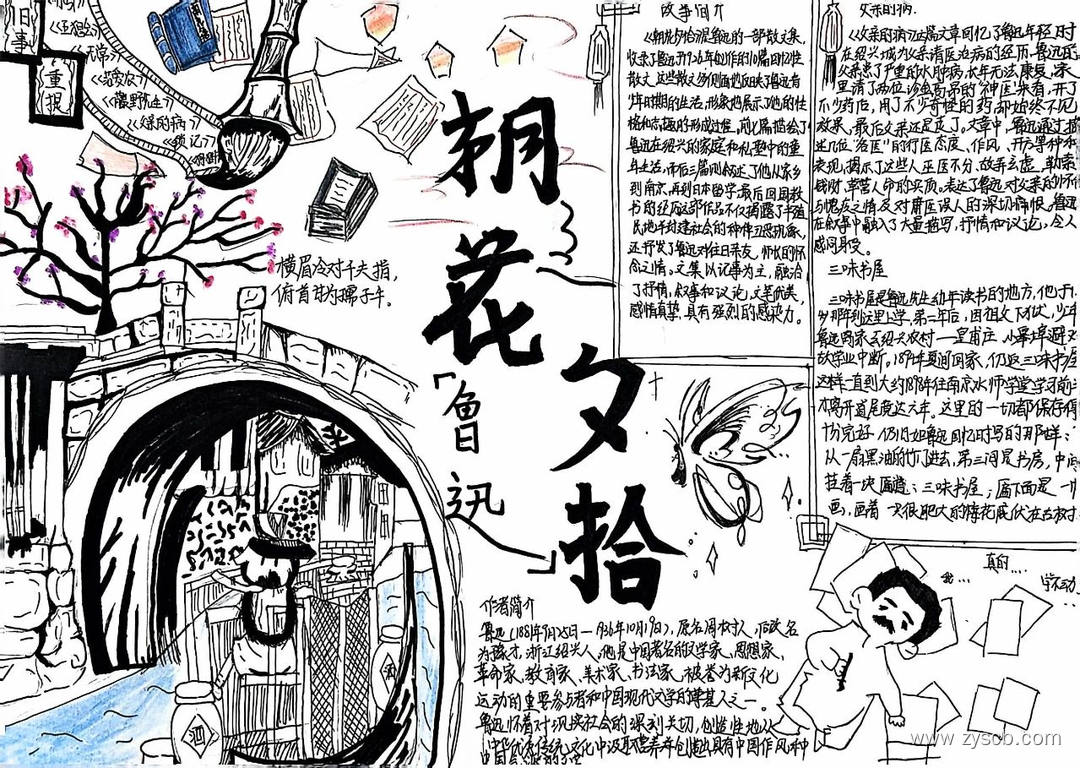 旧事
重提
《五猖会》
《无常》
《藤野先生》
《父亲的病》
《琐记》
横眉冷对千夫指，
俯首甘为孺子牛。
朝花夕拾
「鲁迅」
故事简介
《朝花夕拾》是鲁迅的一部散文集，
收录了鲁迅于1926年创作的10篇回忆性
散文，这些散文多侧面地反映了鲁迅青
少年时期的生活，形象地展示了他的性
格和志趣的形成过程。前七篇描绘了
鲁迅在绍兴的家庭和私塾中的童
年生活，而后三篇则叙述了他从家乡
到南京，再到日本留学，最后回国教
书的经历，这部作品不仅揭露了半殖
民地半封建社会的种种丑恶现象，
还抒发了鲁迅对往日亲友、师长的怀
念之情。文集以记事为主，融洽
了抒情，叙事和议论，文笔优美，
感情真挚，具有强烈的感染力。
父亲的病
《父亲的病》这篇文章回忆了鲁迅年轻时
在绍兴城为父亲请医治病的经历，鲁迅的
父亲患了严重的水肿病，长年无法康复，家
里请了两位诊金高昂的"神医"来看，开了
不少药后，用了不少奇怪的药却始终不见
效果，最后父亲还是走了。文章中，鲁迅通过描
述几位"名医"的行医态度、作风、开方等种种
表现，揭示了这些人巫医不分、故弄玄虚、勒索
钱财、草菅人命的实质。表达了鲁迅对父亲的怀
与愧疚之情及对庸医误人的深切痛恨。鲁迅
在叙事中融入了大量描写，抒情和议论，令人
感同身受。
三味书屋
三味书屋是鲁迅先生幼年读书的地方，他于1
岁那年到这里上学，第二年后，因祖父下狱，少年
鲁迅两家去绍兴农村——皇甫庄、小皋埠避
故学业中断。1894年夏间回家，仍返三味书屋
这样一直到大约1898年往南京水师学堂学习前
才离开，首尾竟达六年。这里的一切都保存得
十分完好，仍旧如鲁迅回忆时写的那样：
从一扇黑油的竹门进去，第三间是书房，中间
挂着一块匾道：三味书屋；匾下面是一
画，画着一只很肥大的梅花鹿伏在古树
作者简介
鲁迅（1881年9月25日—1936年10月19日），原名周樟寿，后改名
为豫才，浙江绍兴人，他是中国著名的文学家、思想家、
革命家、教育家、美术家、书法家，被誉为新文化
运动的重要参与者和中国现代文学的奠基人之一。
鲁迅怀着对现实社会的深刻关切，创造性地从
中华优秀传统文化中汲取营养，并创造出具有中国作风和
我...
真的...
学不动
酒
酒
www.zyscb.com